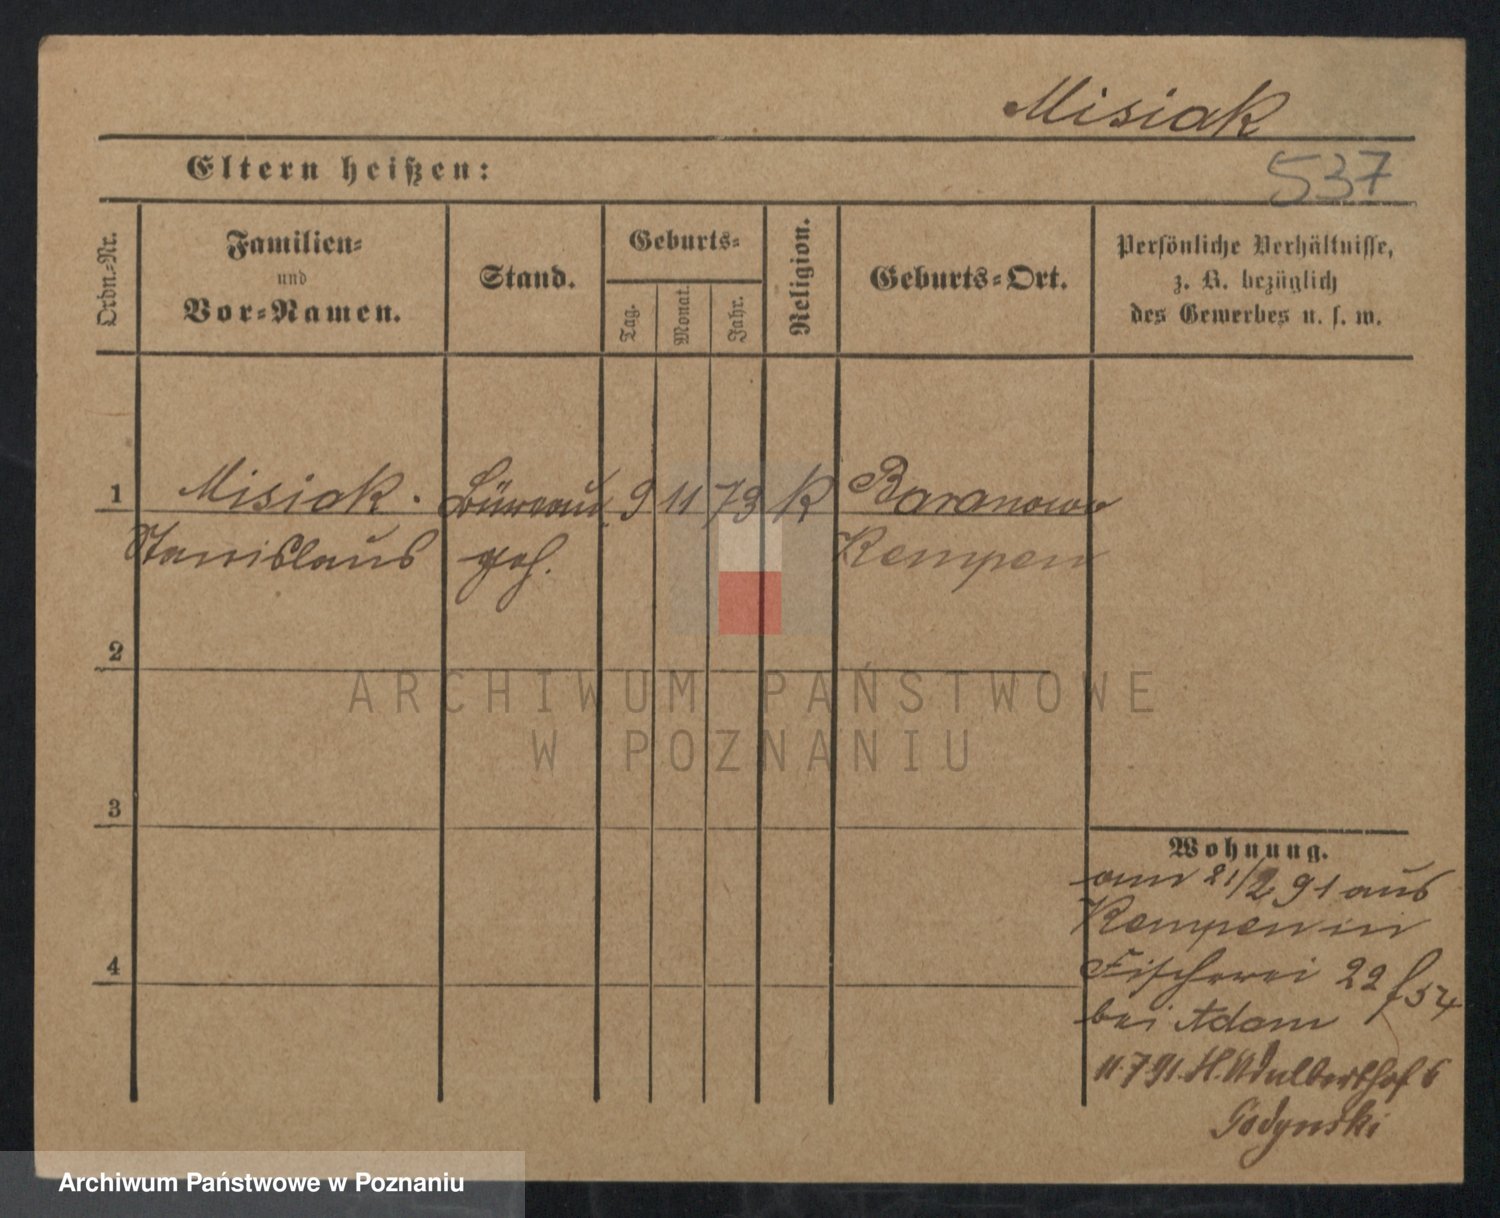 Misiak
Eltern heißen:
537
Ordn.-Nr.
Familien-
und
Vor-Namen.
Stand.
Geburts-
Tag.
Monat.
Jahr.
Religion.
Geburts-Ort.
Persönliche Verhältnisse,
z. B. bezüglich
des Gewerbes u. s. w.
1 Misiak. Büreau 9 11 73 K Baranowo
Stanislaus geh. Kempen
2
ARCHIWUM PAŃSTWOWE
W POZNANIU
3
Wohnung.
am 21/2 91 aus
Kempen in
Fischerei 22
bei Adam
4
11.7.91. St. Adalberthof 6
Godynski
Archiwum Państwowe w Poznaniu